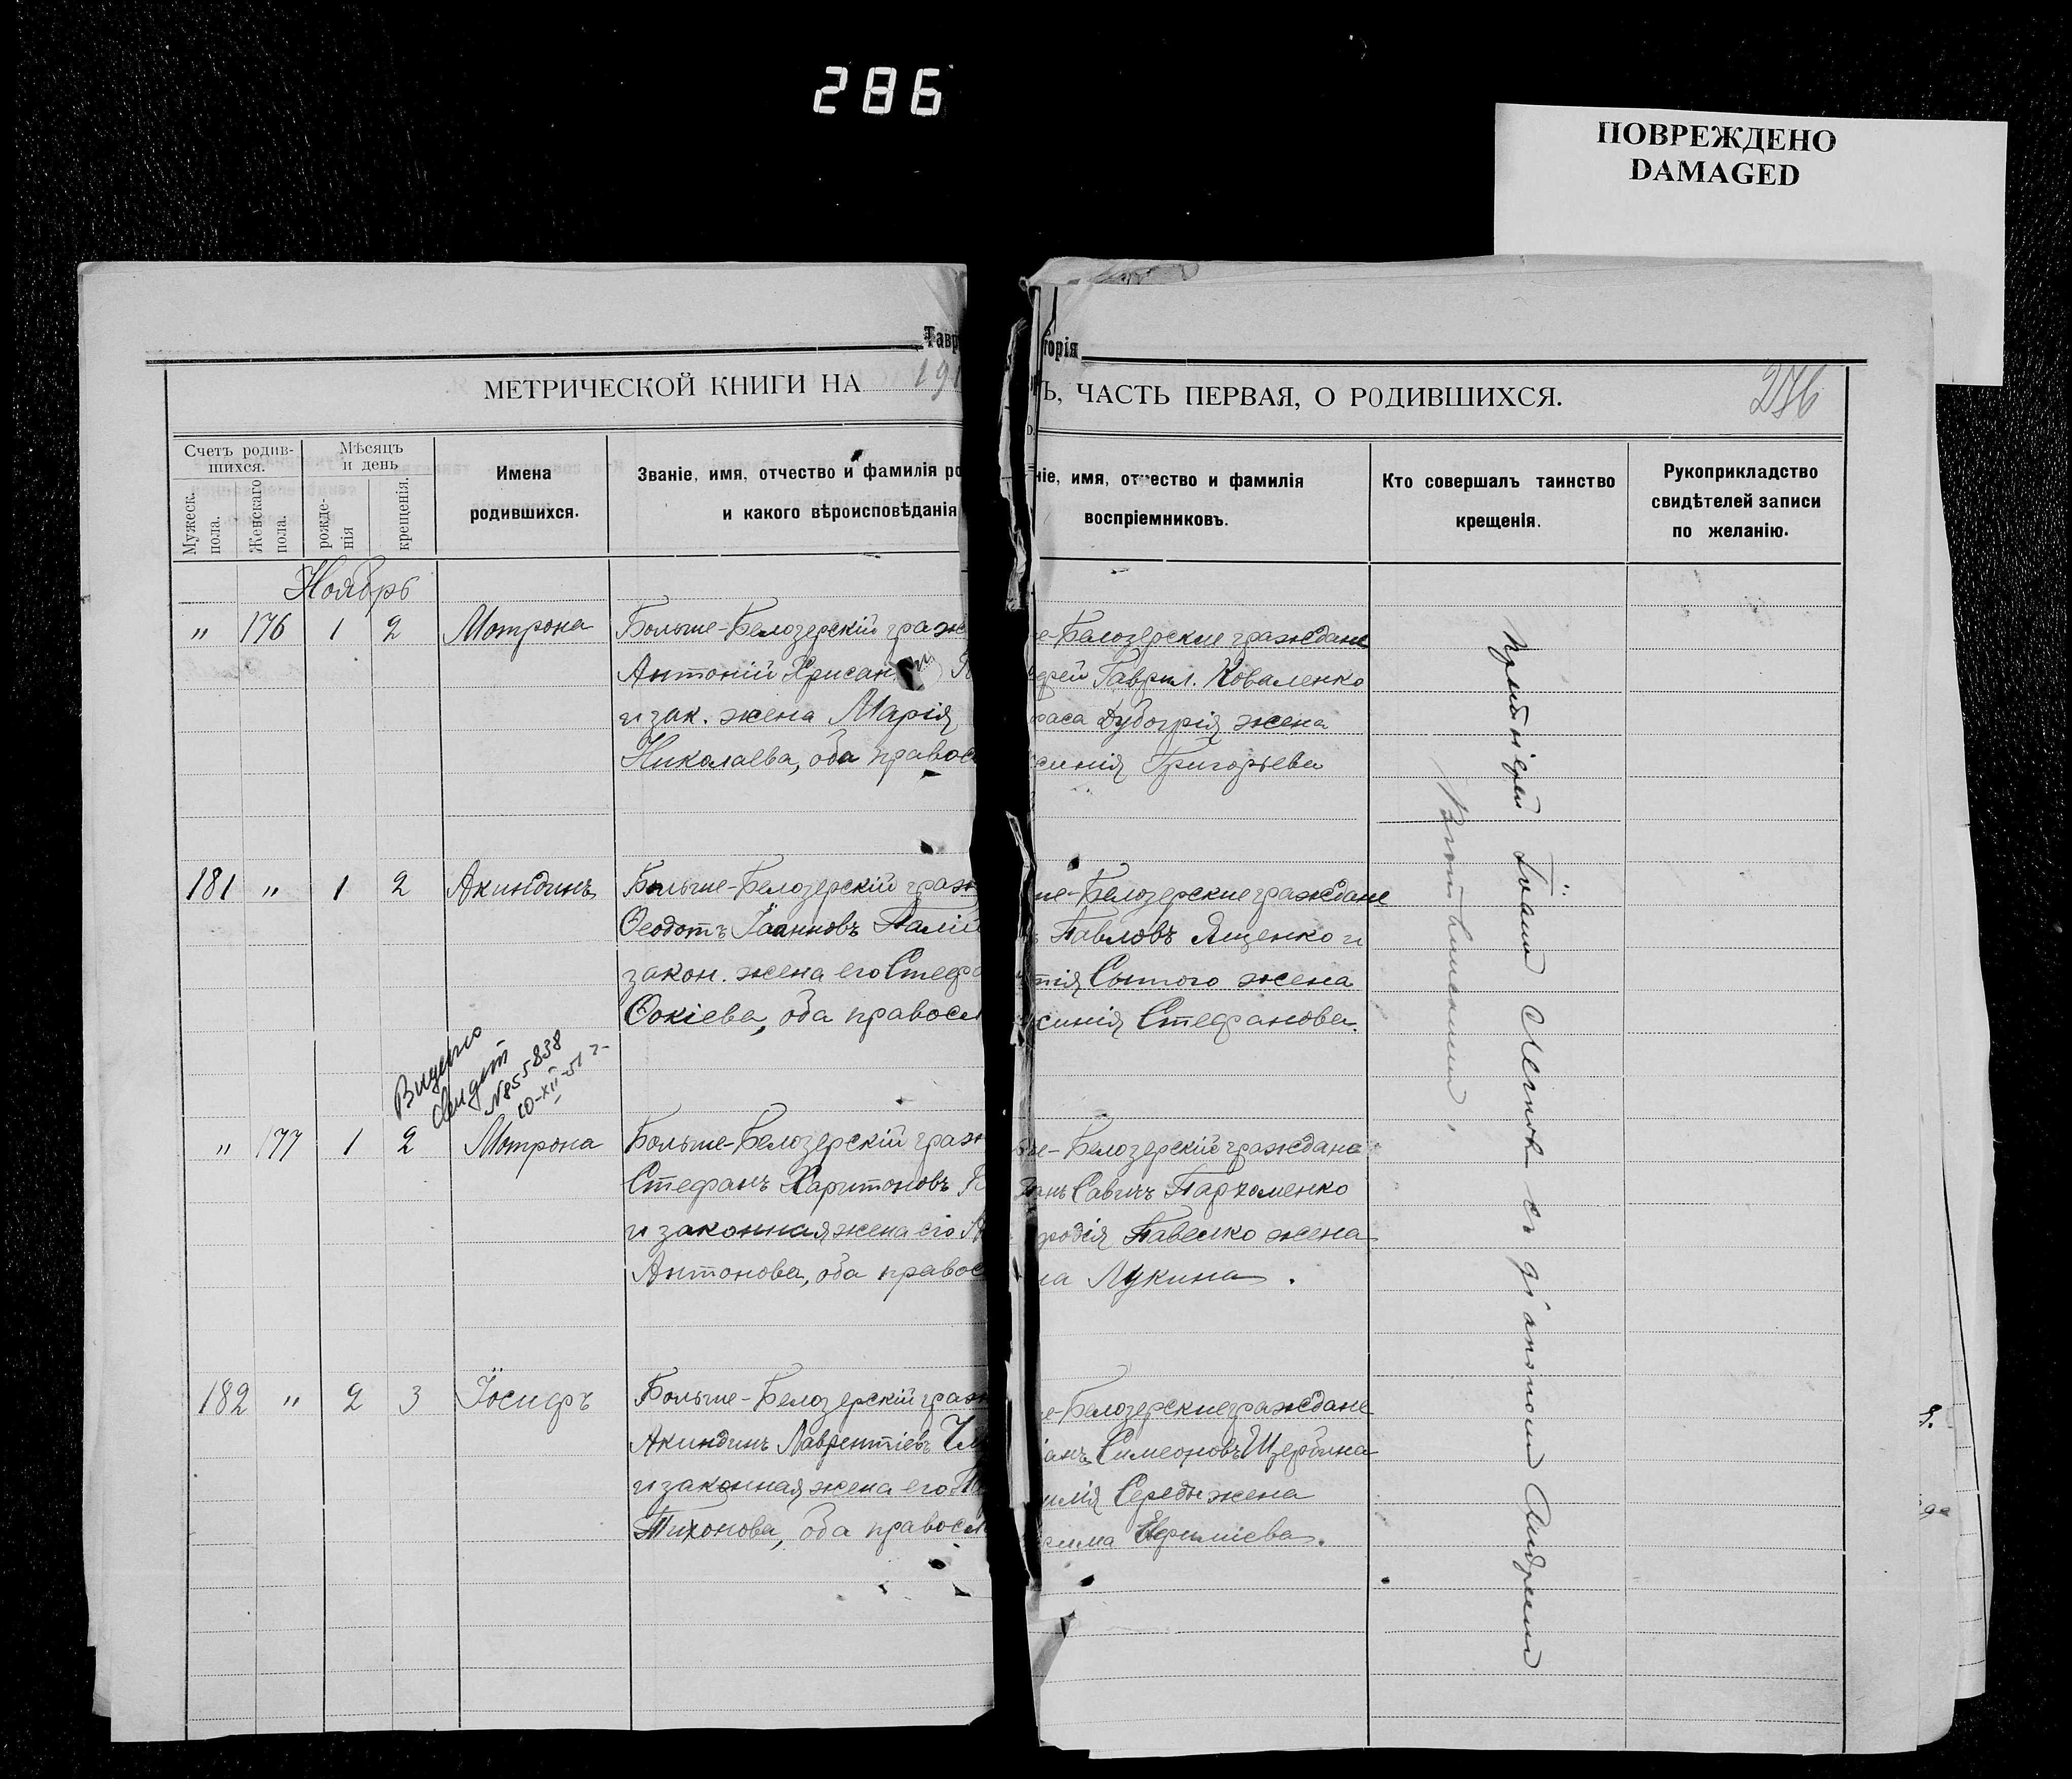 286
ПОВРЕЖДЕНО
DAMAGED
Тавр
торія
МЕТРИЧЕСКОЙ КНИГИ НА 191
Ъ, ЧАСТЬ ПЕРВАЯ, О РОДИВШИХСЯ.
276
Счетъ родив-
шихся.
Мужеск.
пола.
Женскаго
пола.
Мѣсяцъ
и день
рожде-
нія
крещенія.
Имена
родившихся.
Званіе, имя, отчество и фамилія ро
и какого вѣроисповѣданія
ніе, имя, отчество и фамилія
воспріемниковъ.
Кто совершалъ таинство
крещенія.
Рукоприкладство
свидѣтелей записи
по желанію.
Ноябрь
" 176 1 2 Мотрона
Больше-Белозерскій граж
Антоній Хрисан
и зак. жена Марія
Николаева, оба правос
е-Белозерские граждане
Гаврил. Коваленко
раса Дубогрія жена
синія Григорьева
181 " 1 2 Акиндинъ
Больше-Белозерскій граж
Ѳеодотъ Іоанновъ Палій
закон. жена его Стефа
Ѳокіева, оба правосл
ше-Белозерские граждане
Павловъ Ященко и
тія Сытого жена
синія Стефанова.
Видено
Свидет
№855838
10-XII-51 г-
" 177 1 2 Мотрона
Больше-Белозерскій граж
Стефанъ Харитоновъ
и законная жена его
Антонова, оба правос
ше-Белозерскій граждане
Савичъ Пархоменко
родія Павелко жена
на Лукина.
182 " 2 3 Іосифъ
Больше-Белозерскій граж
Акиндинъ Лаврентіевъ
и законная жена его
Тихонова, оба правосл
е-Белозерские граждане
анъ Симеоновъ Щербина
илія Середы жена
Евфиміева.
Іоанн
с діаконом Андреем